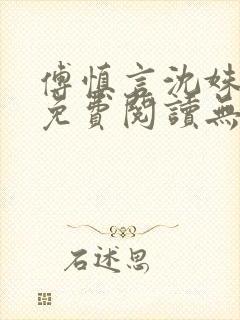 傅慎言沈姝
免費閱讀無
石述思